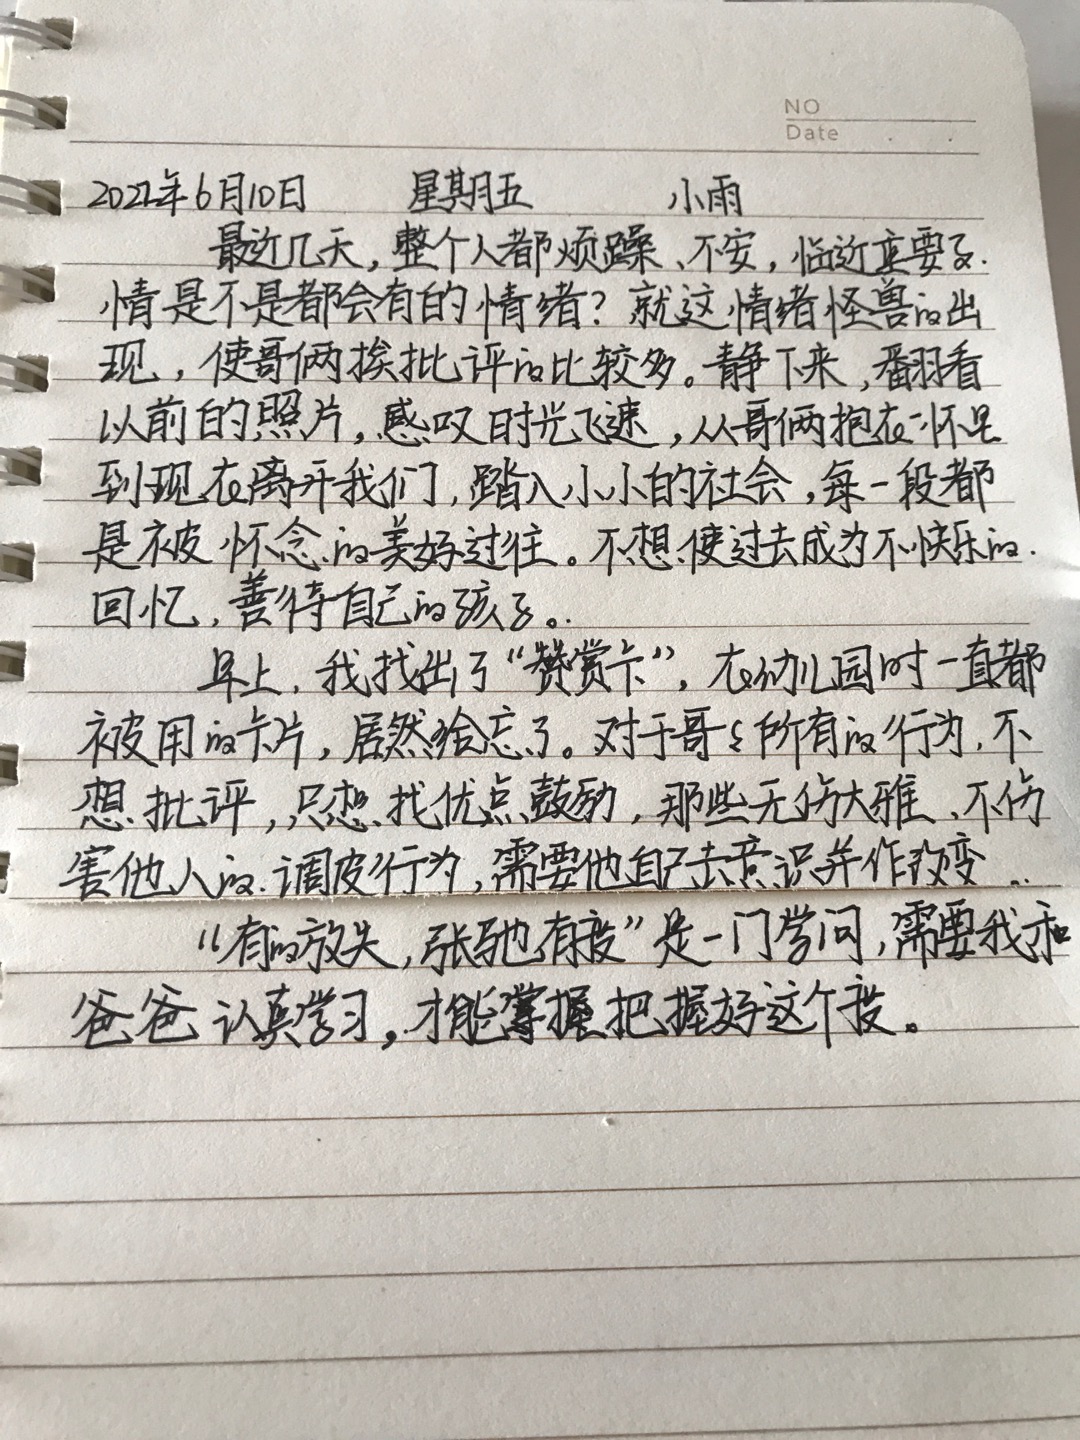 NO
Date
2022年6月10日 星期五 小雨
最近几天,整个人都烦躁、不安,临近重要
情是不是都会有的情绪?就这情绪怪兽的出
现,使哥俩挨批评的比较多。静下来,翻看
以前的照片,感叹时光飞速,从哥俩抱在怀里
到现在离开我们,踏入小小的社会,每一段都
是被怀念的美好过往。不想使过去成为不快乐的
回忆,善待自己的孩子。
早上,我找出了“赞赏卡”,在幼儿园时一直都
被用的卡片,居然给忘了。对于哥哥所有的行为,不
想批评,只想找优点鼓励,那些无伤大雅、不伤
害他人的调皮行为,需要他自己去意识并作改变..
“有的放矢,张驰有度”是一门学问,需要我和
爸爸认真学习,才能掌握把握好这个度。